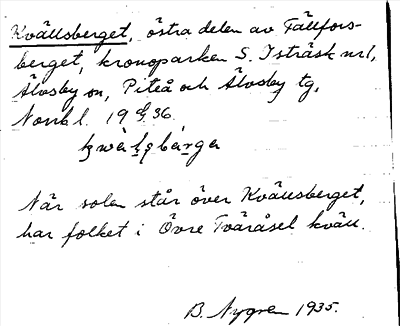 Kvällsberget, östra delen av Fällfors-
berget, kronoparken S. Isträsk nr 1,
Älvsby sn, Piteå och Älvsby tg,
Norrb l. 19 36.
När solen står över Kvällsberget,
har folket i Övre Tväråsel kväll.
B. Nygren 1935.